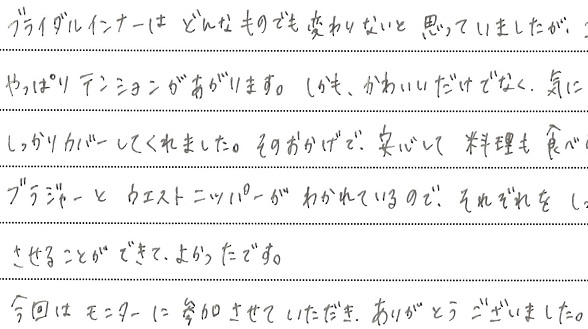 ブライダルインナーは どんなものでも変わりないと 思っていましたが、
やっぱり テンションがあがります。しかも、かわいいだけでなく、気に
しっかりカバーしてくれました。そのおかげで、安心して 料理も 食べ
ブラジャーと ウエストニッパーが わかれているので、それぞれを しっ
させることが できて、よかったです。
今回は モニターに 参加させていただき、ありがとう ございました。